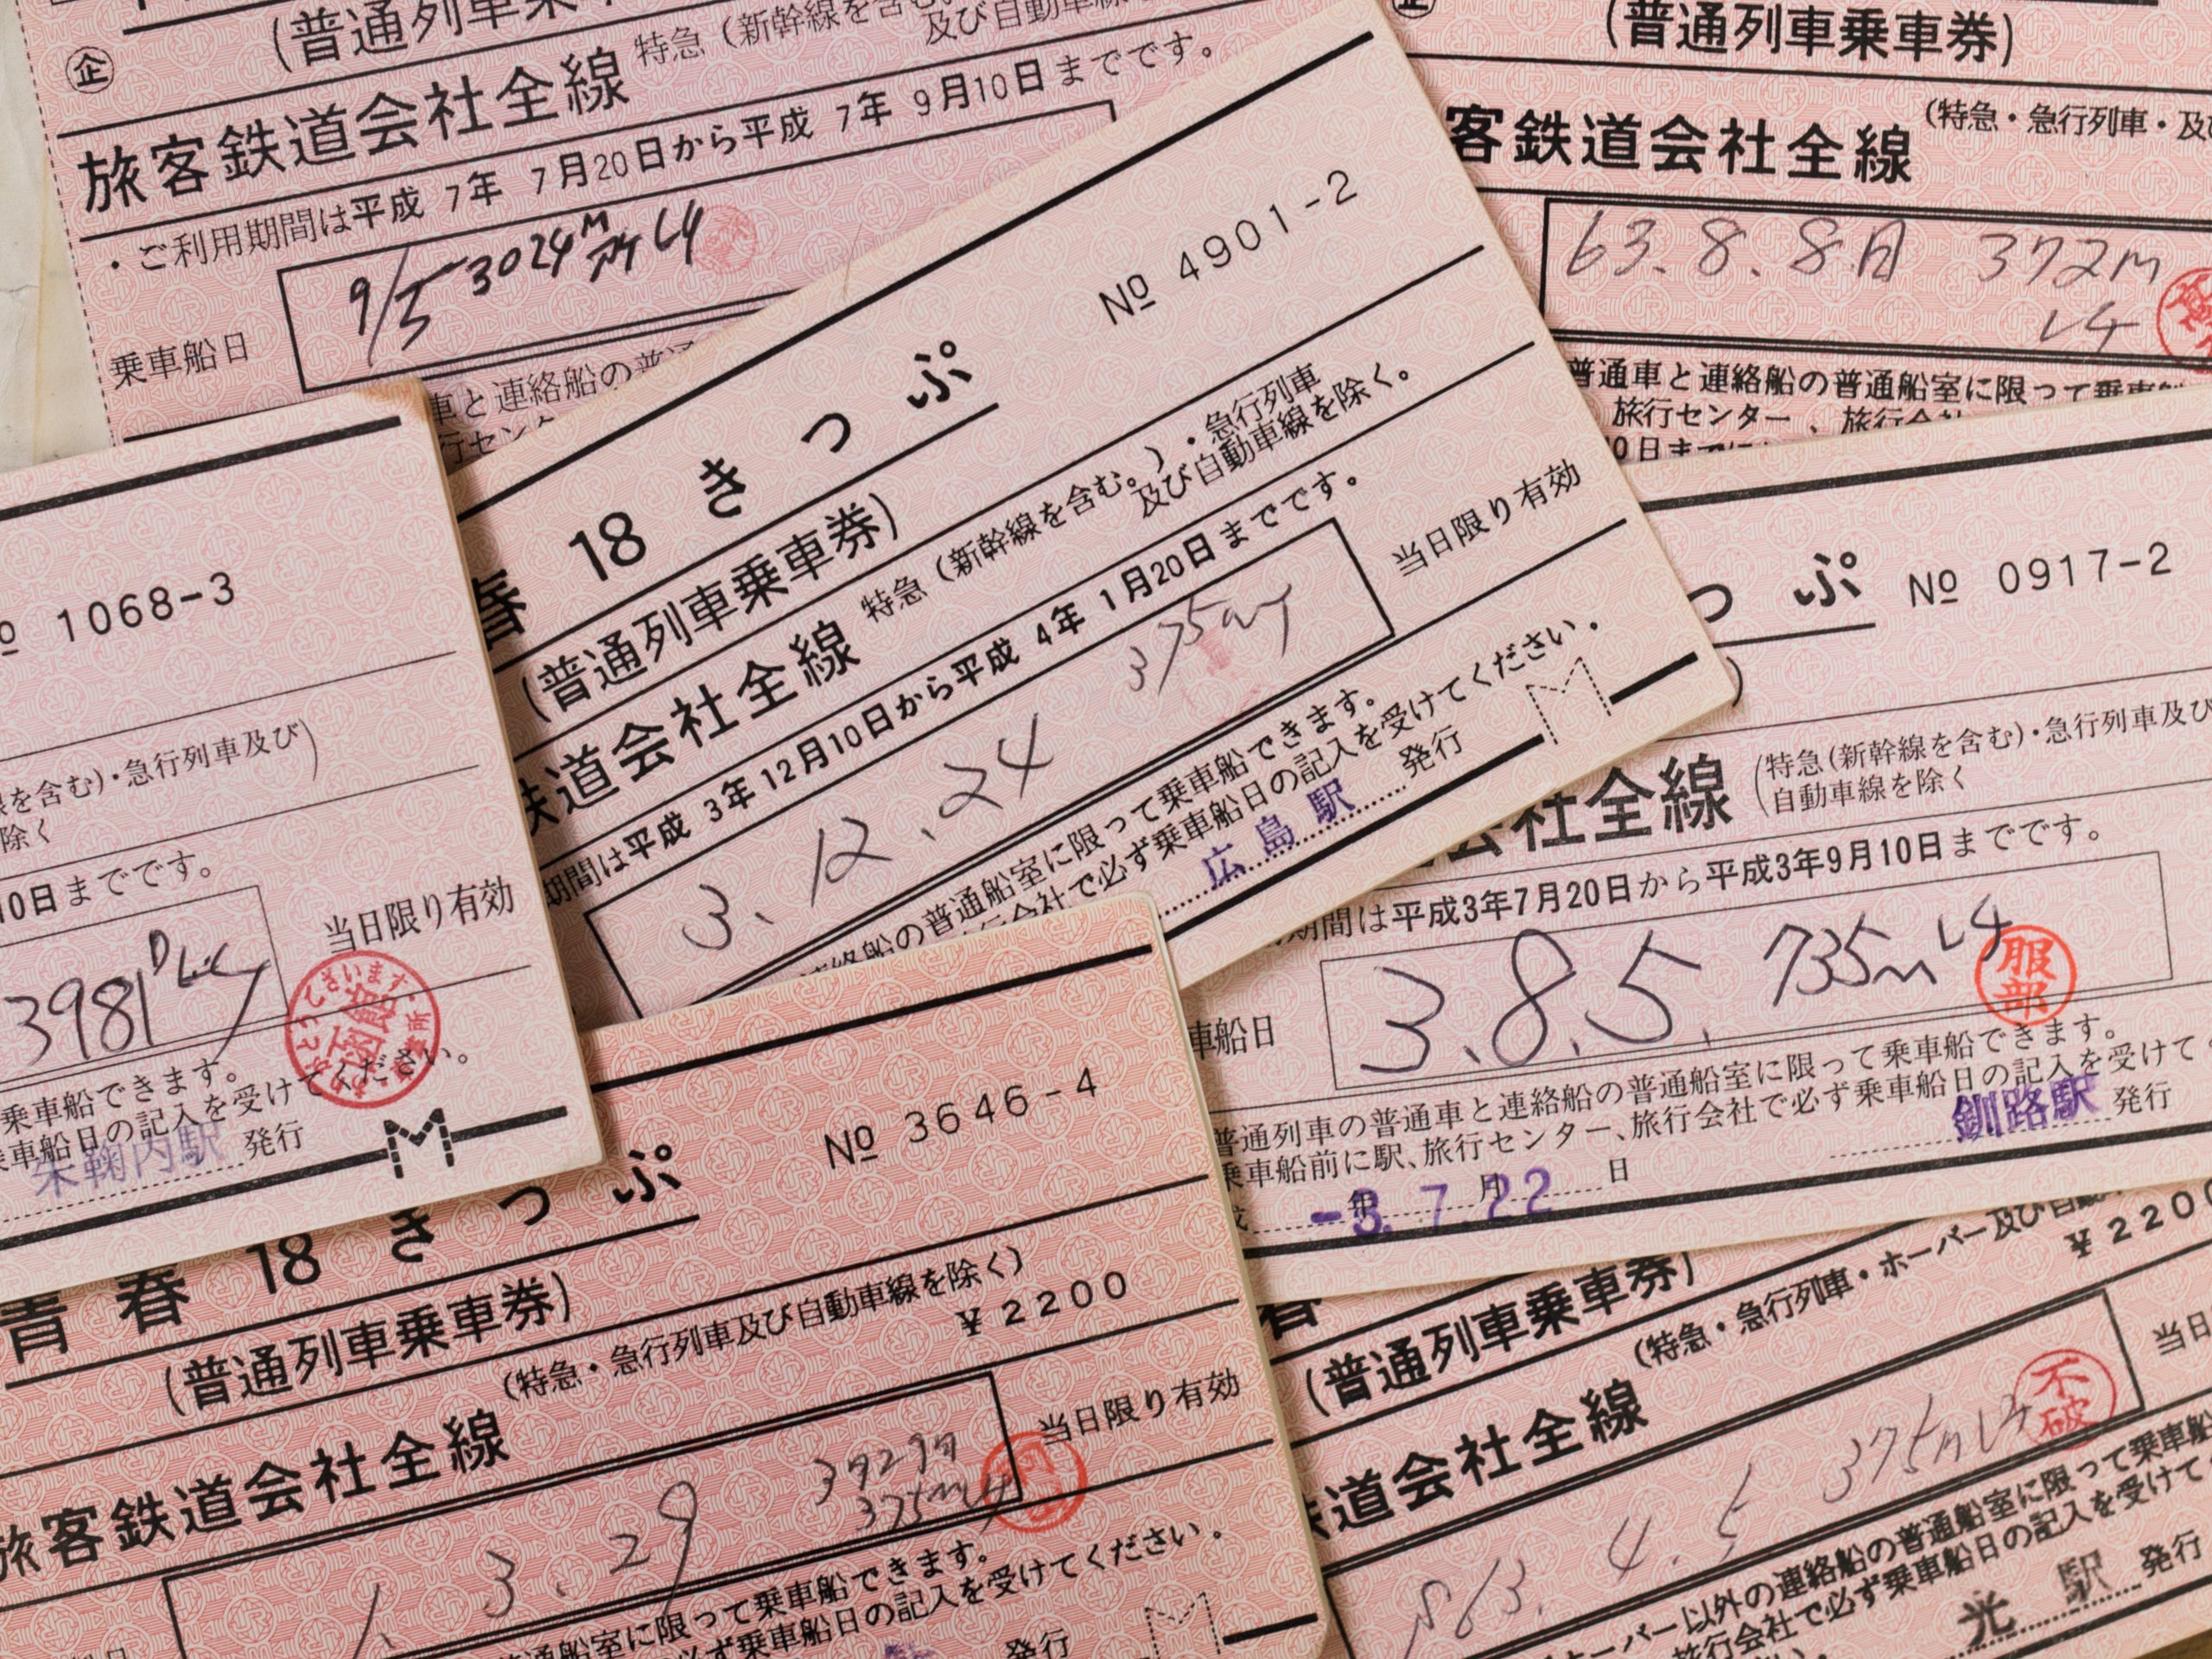 (普通列車乗車券)
企
旅客鉄道会社全線
特急(新幹線を含む
及び自動車線
・ご利用期間は平成 7年 7月20日から平成 7年 9月10日までです。
9/5 3024M レチ
乗車船日
車と連絡船の普通
行センタ
(普通列車乗車券)
客鉄道会社全線
(特急・急行列車・及び
63.8.8 372M
レチ
普通車と連絡船の普通船室に限って乗車船
旅行センター、旅行会社
0日まで
№ 4901-2
春 18 きっぷ
(普通列車乗車券)
鉄道会社全線
特急(新幹線を含む。)・急行列車
及び自動車線を除く。
期間は平成 3年12月10日から平成 4年 1月20日までです。
当日限り有効
3.12.24
375M
連絡船の普通船室に限って乗車船できます。
行会社で必ず乗車船日の記入を受けてください.
広島駅 発行
M
№ 1068-3
を含む)・急行列車及び)
除く
10日までです。
3981D
当日限り有効
乗車船できます。
乗車船日の記入を受けてください。
朱鞠内駅 発行
M
っぷ № 0917-2
会社全線
(特急(新幹線を含む)・急行列車及び
自動車線を除く
期間は平成3年7月20日から平成3年9月10日までです。
車船日
3.8.5. 735M レチ
服部
普通列車の普通車と連絡船の普通船室に限って乗車船できます。
乗車船前に駅、旅行センター、旅行会社で必ず乗車船日の記入を受けて
釧路駅 発行
-3.7.22
年 月 日
№ 3646-4
青春18きっぷ
(普通列車乗車券)
(特急・急行列車及び自動車線を除く)
¥2200
旅客鉄道会社全線
当日限り有効
1.3.29
375M レチ
通船室に限って乗車船できます。
必ず乗車船日の記入を受けてください.
発行
M
春
(普通列車乗車券)
(特急・急行列車・ホーバー及び自動
¥2200
鉄道会社全線
当日
S63.4.5 375M レチ
不破
ホーバー以外の連絡船の普通船室に限って乗車船
旅行会社で必ず乗車船日の記入を受けて
光駅 発行